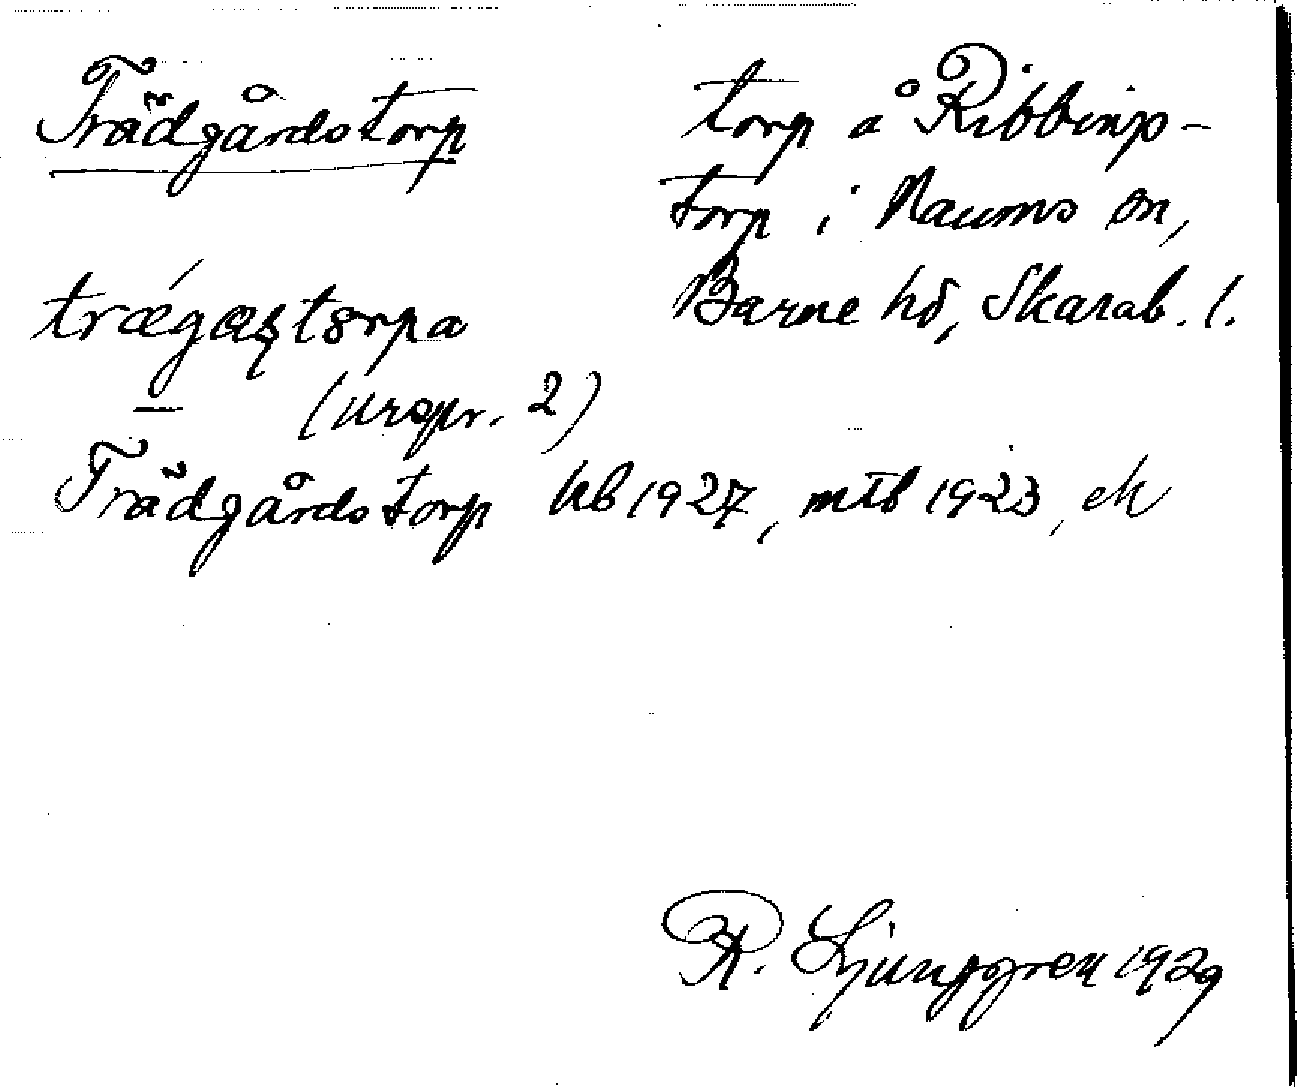 Trädgårdstorp
torp å Ribbings-
torp i Naums sn,
Barne hd, Skarab. l.
trǽgaʂtorpa
(urspr. 2)
Trädgårdstorp kb 1927, mtb 1923, ek
R. Ljunggren 1929